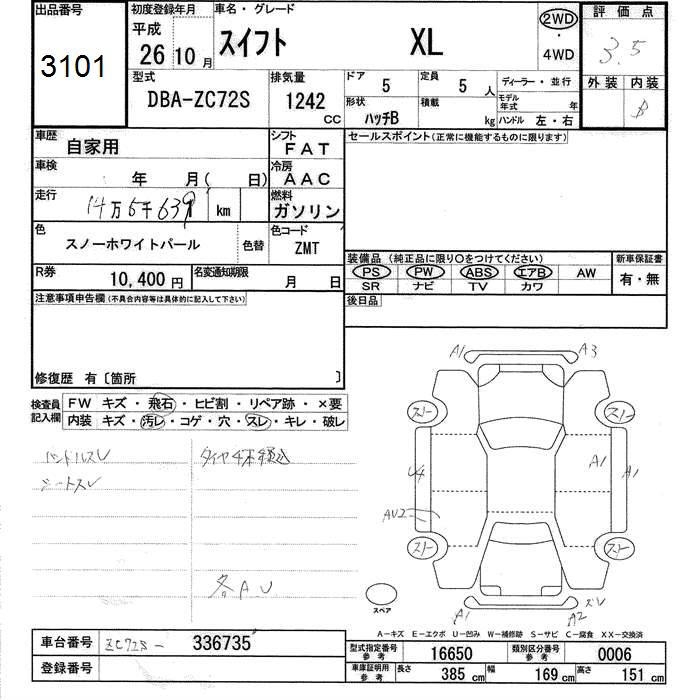 出品番号
3101
初度登録年月
平成
26 10 月
車名・グレード
スイフト XL
2WD
・
4WD
評価点
3.5
外装 内装
B
型式
DBA-ZC72S
排気量
1242
CC
ドア
5
定員
5 人
形状
ハッチB
積載
kg
ディーラー・並行
モデル
年式 年
ハンドル 左・右
車歴
自家用
シフト
FAT
車検
年 月( 日)
冷房
AAC
走行
14万5千639 km
燃料
ガソリン
色
スノーホワイトパール
色替
色コード
ZMT
R券
10,400 円
名変通知期限
月 日
セールスポイント(正常に機能するものに限ります)
装備品(純正品に限り○をつけてください)
PS PW ABS エアB AW
SR ナビ TV カワ
新車保証書
有・無
後日品
注意事項申告欄(不具合内容等は具体的に記入して下さい)
修復歴 有〔箇所 〕
検査員
記入欄
FW キズ・飛石・ヒビ割・リペア跡・×要
内装 キズ・汚レ・コゲ・穴・スレ・キレ・破レ
ハンドルスレ
シートスレ
タイヤ4本積込
各AU
A1
A3
スノー
スノー
U4
A1
A1
AU2
スノー
スノー
スペア
A1
A2
ズレ
A-キズ E-エクボ U-凹み W-補修跡 S-サビ C-腐食 XX-交換済
車台番号
ZC72S- 336735
登録番号
型式指定番号
参考
16650
類別区分番号
参考
0006
車庫証明用
参考
長さ 385 cm
幅 169 cm
高さ 151 cm